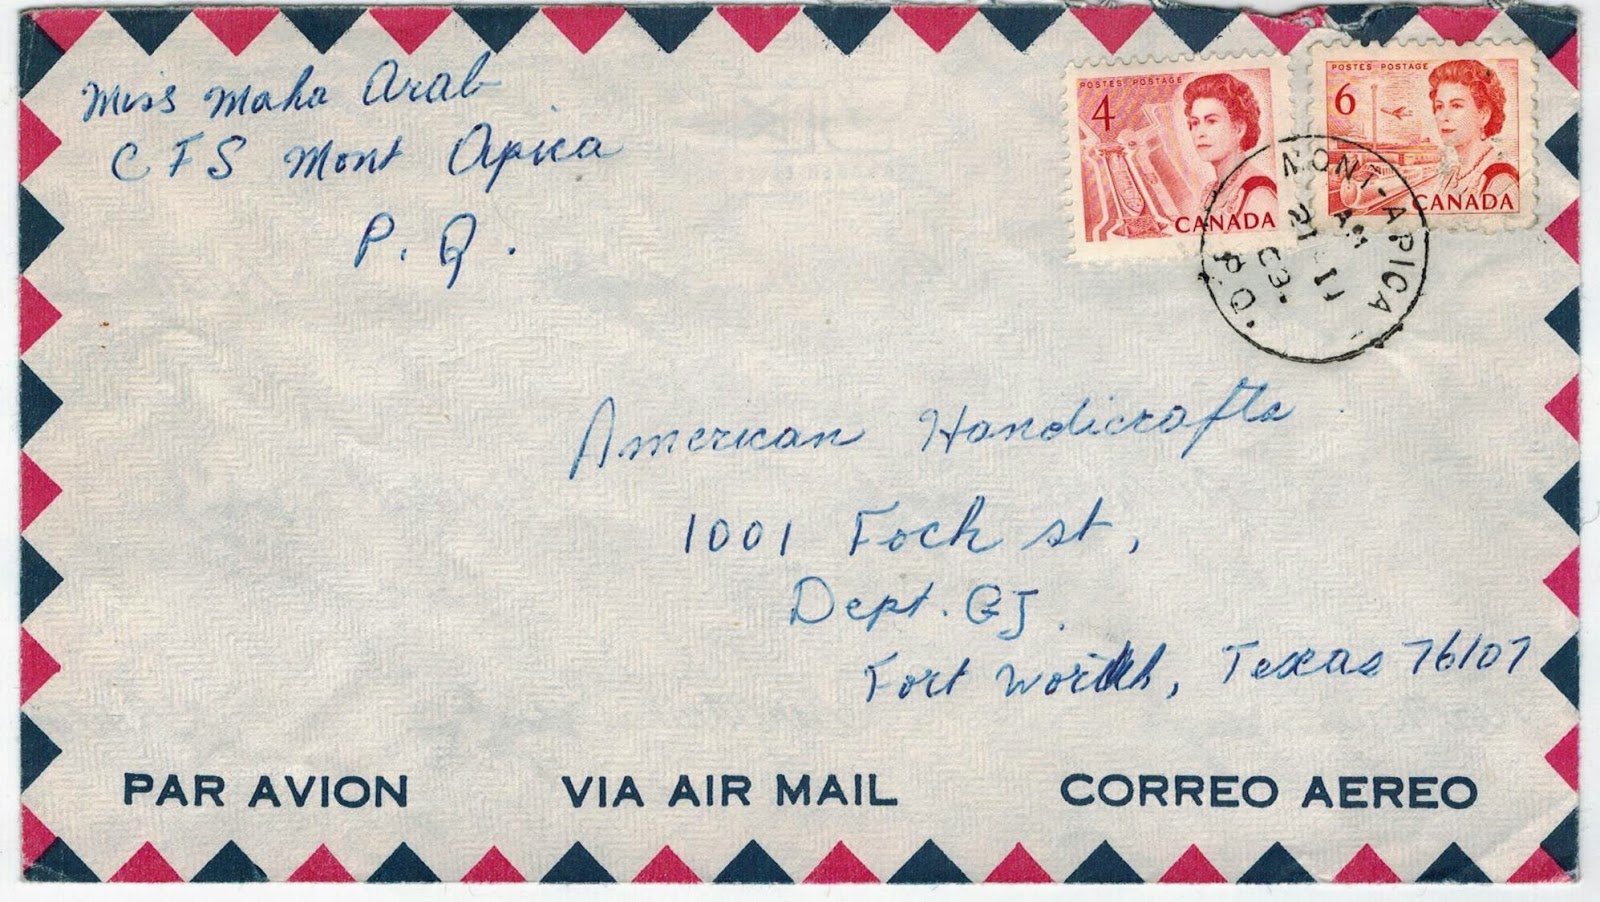 Miss Maha Arab
CFS Mont Apica
P. Q.
POSTES POSTAGE
4
CANADA
POSTES POSTAGE
6
CANADA
MONT-APICA
AM
21 II
P.Q.
American Handicrafts
1001 Foch st,
Dept. GJ.
Fort Worth, Texas 76107
PAR AVION VIA AIR MAIL CORREO AEREO